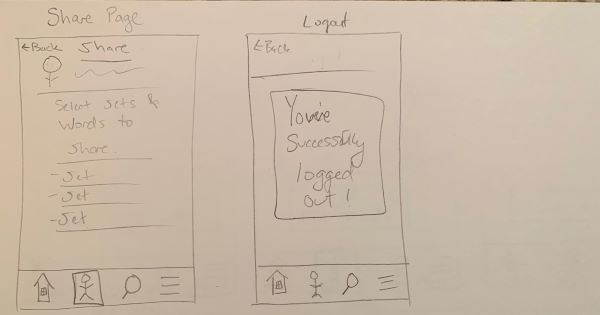 Share Page
←Back Share
Select sets &
words to
share.
-Set
-Set
-Set
Logout
←Back
You're
Successfully
logged
out!